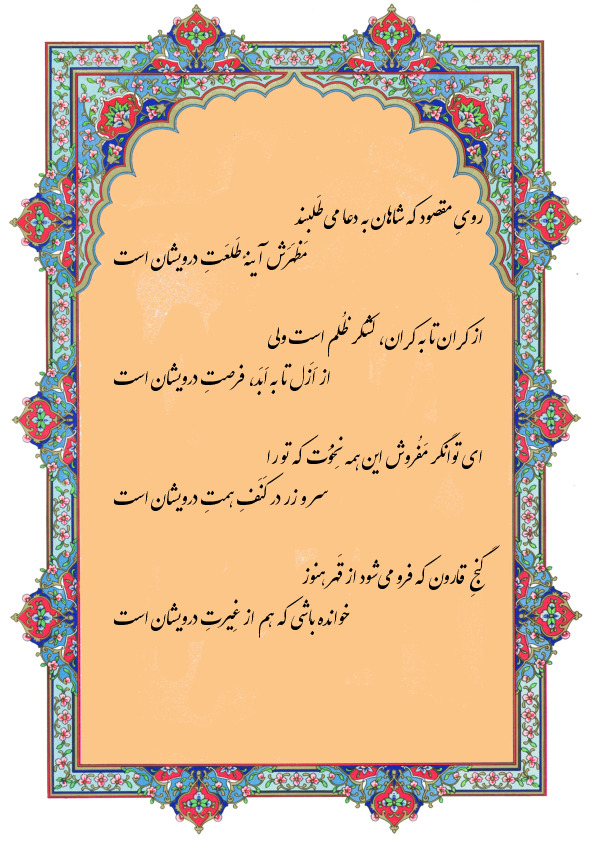 رویِ مقصود که شاهان به دعا می طَلَبند
مَظهَرَش آینهٔ طَلعَتِ درویشان است
از کران تا به کران، لشکر ظُلم است ولی
از اَزَل تا به اَبَد، فرصتِ درویشان است
ای توانگر مَفُروش این همه نِخْوَت که تو را
سر و زر در کَنَفِ همتِ درویشان است
گنجِ قارون که فرو می‌شود از قَهر هنوز
خوانده باشی که هم از غِیرتِ درویشان است